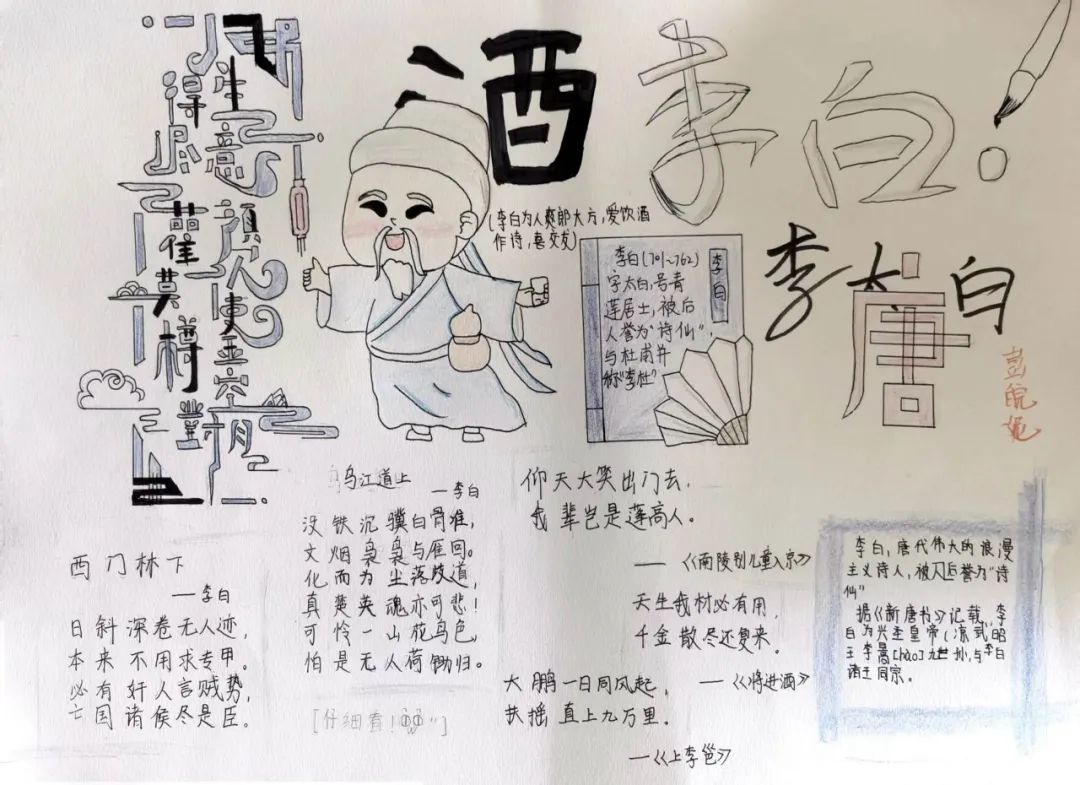 生得意尽
莫使金樽空對月
酒
李白!
(李白为人爽郎大方,爱饮酒
作诗,喜交友)
李白
李白(701~762)
字太白,号青
莲居士,被后
人誉为“诗仙”
与杜甫并
称“李杜”
李太白
唐
西门林下
—李白
日斜深巷无人迹,
本来不用求专甲。
必有奸人言贼势,
亡国诸侯尽是臣。
乌江道上
—李白
没铁沉骥白骨堆,
文烟枭枭与僱回。
化而为尘落故道,
真楚英魂亦可悲!
可怜一山花鸟色,
怕是无人荷锄归。
[仔细看!”]
仰天大笑出门去,
我辈岂是蓬高人。
—《南陵别儿童入京》
天生我材必有用,
千金散尽还复来。
—《将进酒》
大鹏一日同风起,
扶摇直上九万里。
—《上李邕》
李白,唐代伟大的浪漫
主义诗人,被后人誉为“诗
仙”
据《新唐书》记载,李
白为兴圣皇帝(凉武昭
王李暠[hào]九世孙,与李白
诸王同宗。